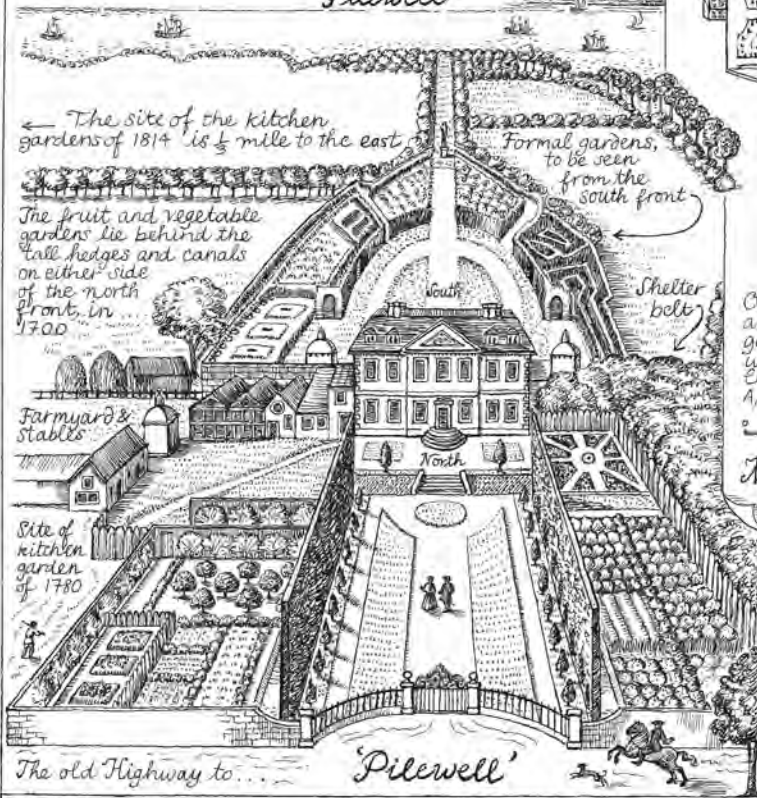 Pilewell
← The site of the kitchen
gardens of 1814 is ⅓ mile to the east
Formal gardens,
to be seen
from the
south front
The fruit and vegetable
gardens lie behind the
tall hedges and canals
on either side
of the north
front, in ...
1700
South
Shelter
belt
Farmyard &
Stables
North
Site of
kitchen
garden
of 1780
The old Highway to....
'Pilewell'